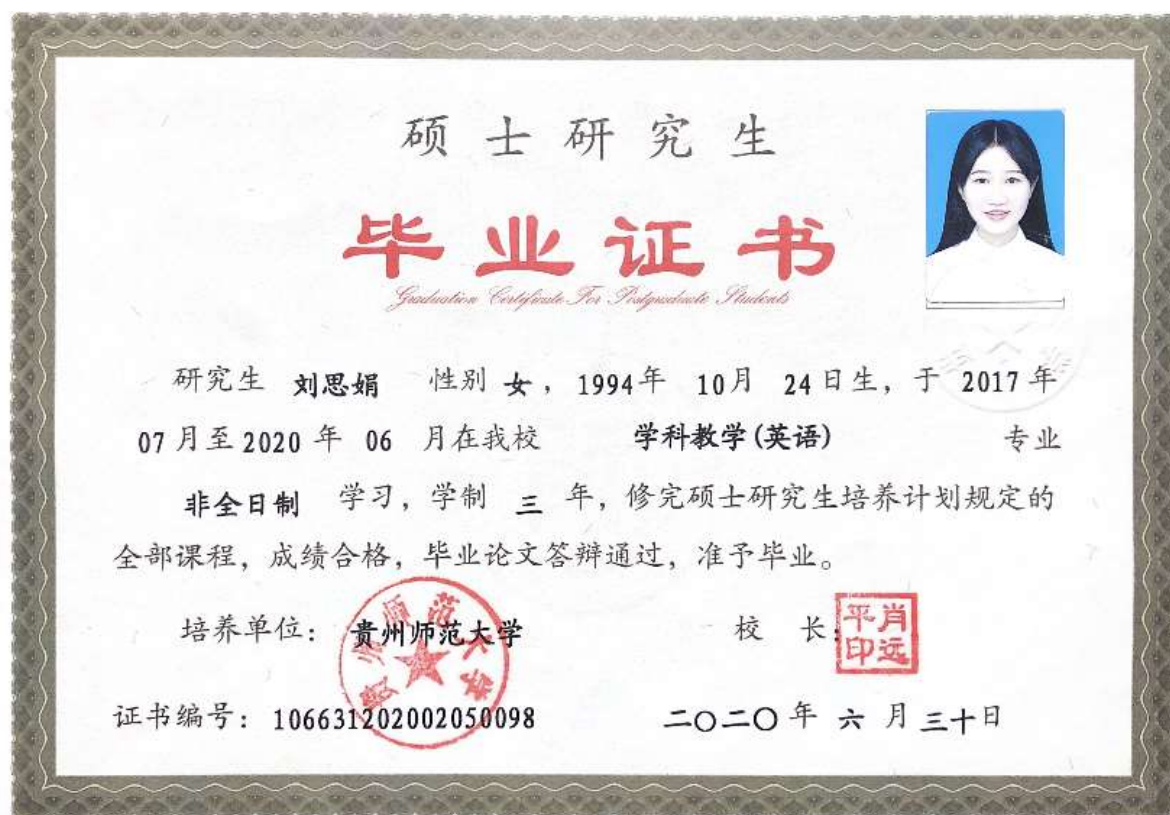 硕士研究生
毕业证书
Graduation Certificate For Postgraduate Students
研究生 刘思娟 性别 女，1994年 10月 24日生，于 2017年
07月至2020年 06 月在我校 学科教学(英语) 专业
非全日制 学习，学制 三 年，修完硕士研究生培养计划规定的
全部课程，成绩合格，毕业论文答辩通过，准予毕业。
培养单位：贵州师范大学 校 长：
贵州师范大学
肖远平印
证书编号：106631202002050098 二〇二〇年 六 月 三十日